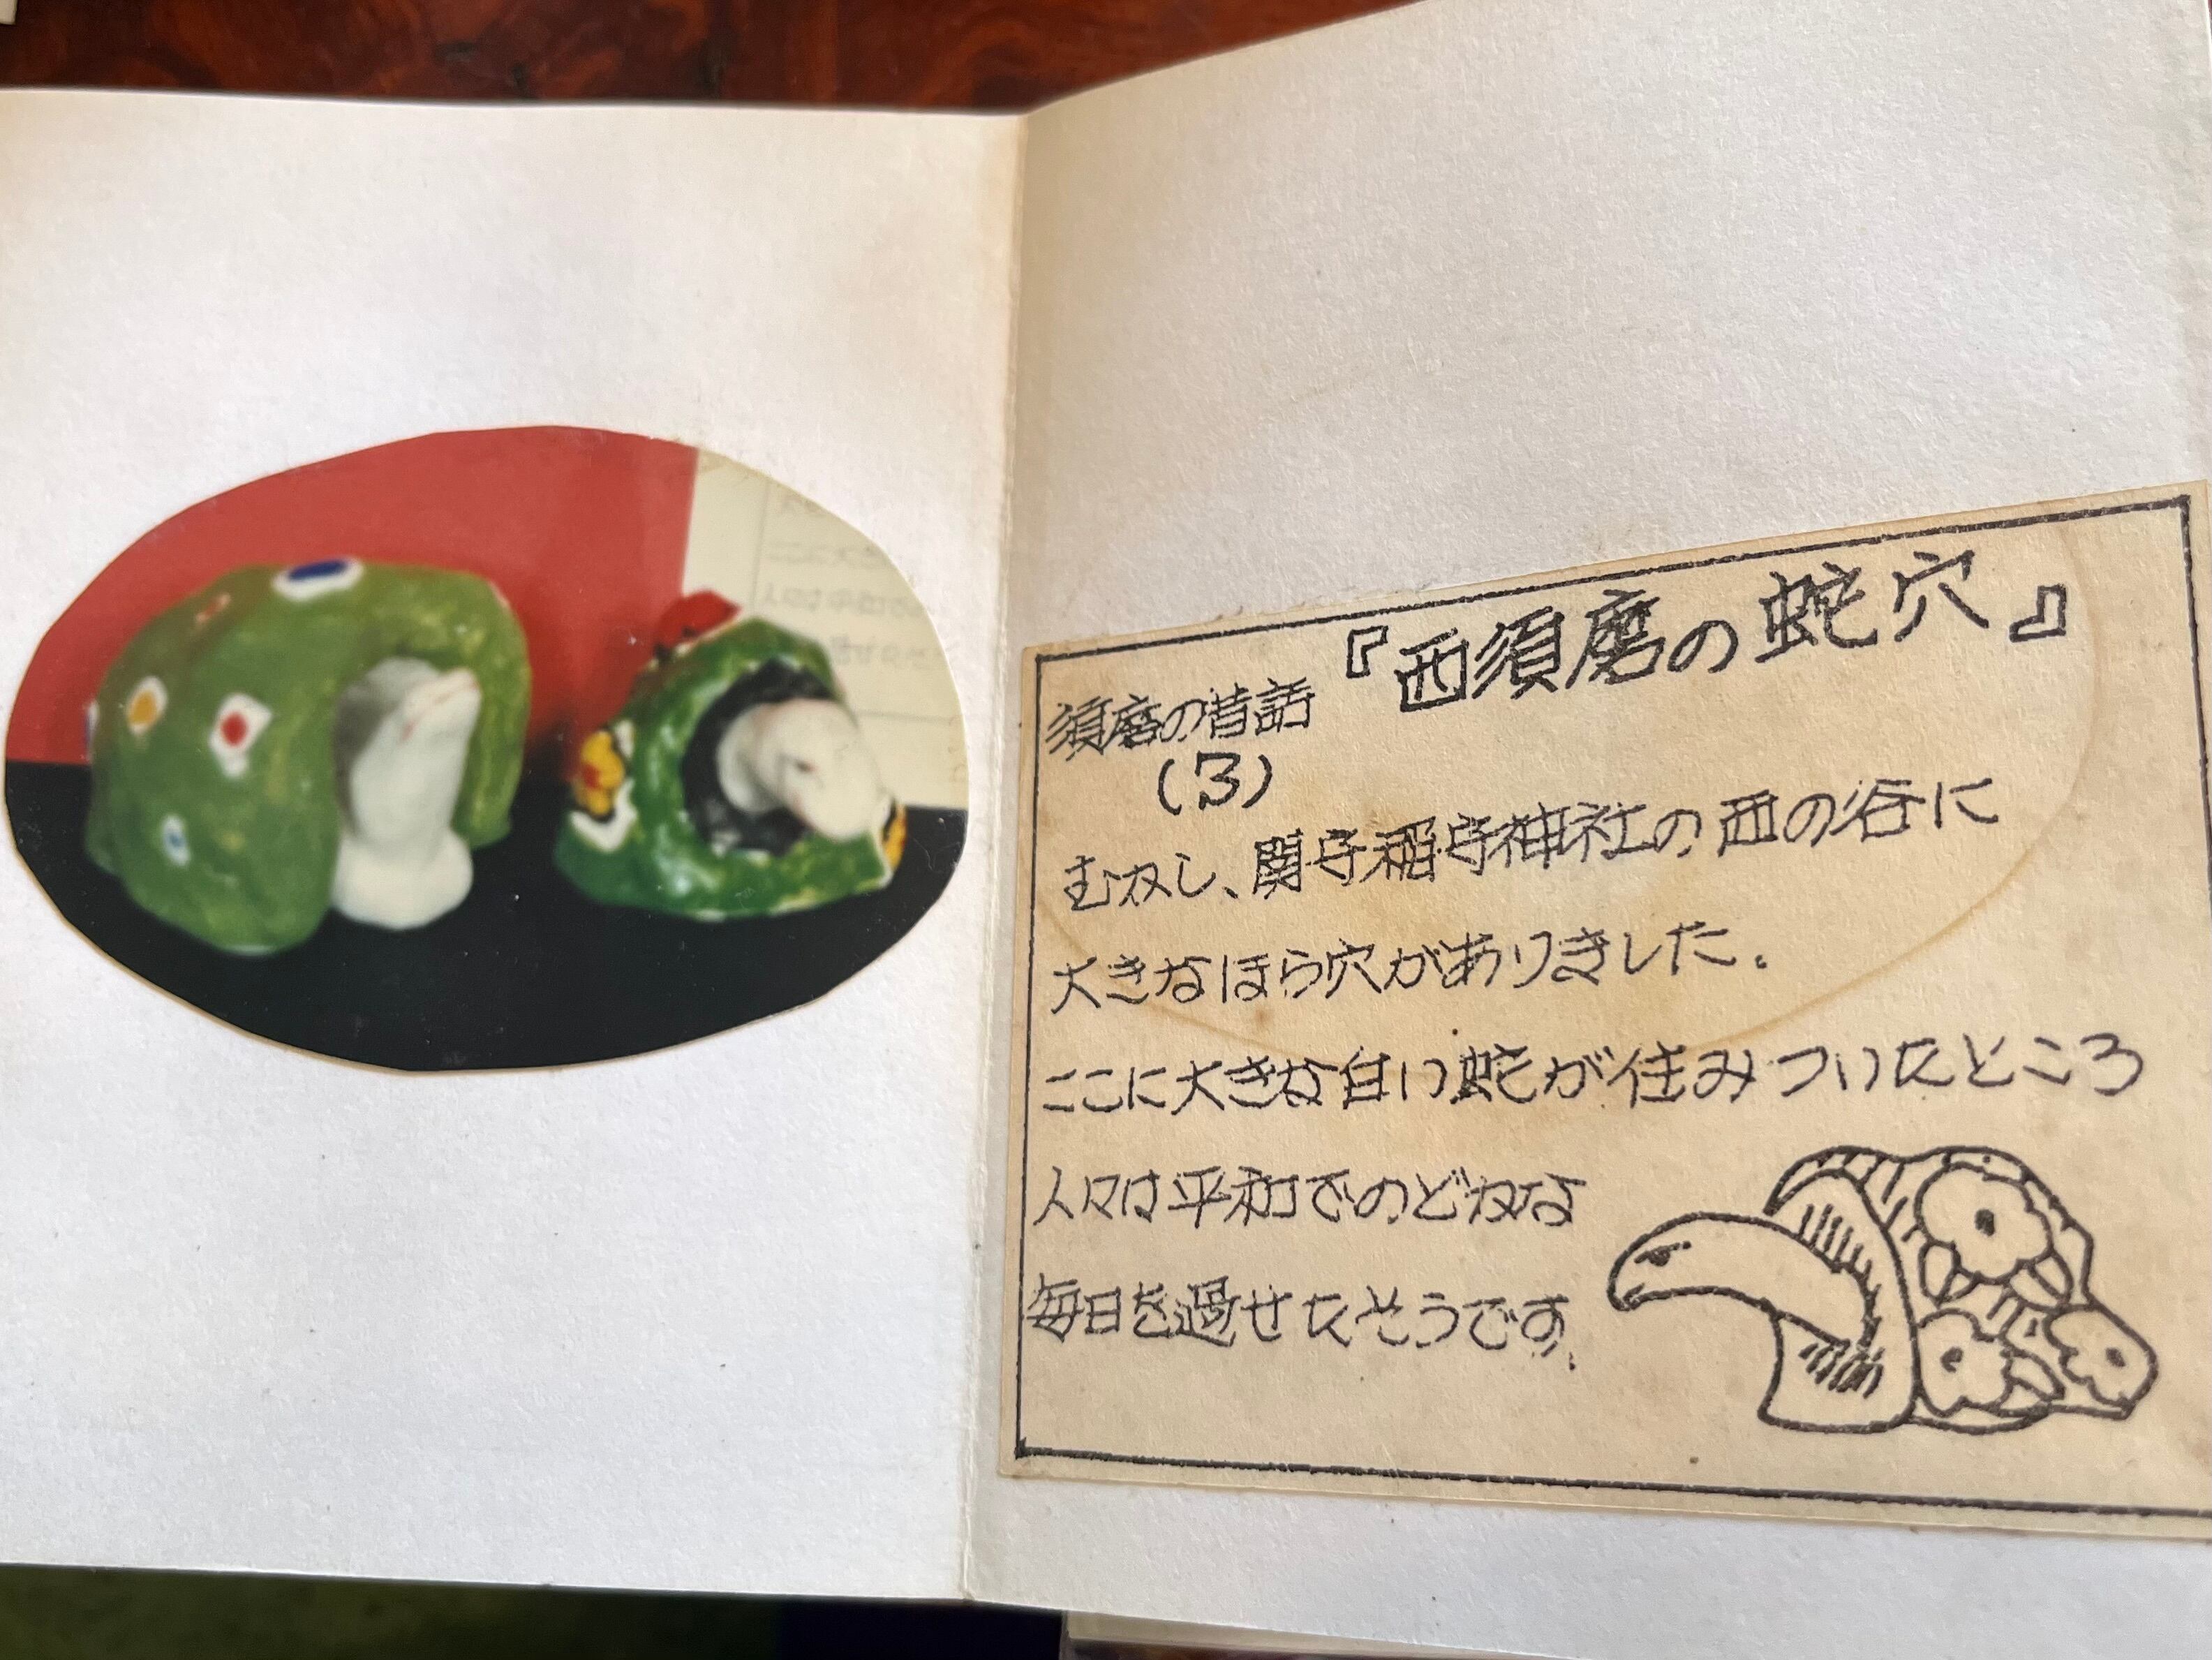 『西須磨の蛇穴』
須磨の昔話
(3)
むかし、関守稲守神社の西の谷に
大きなほら穴がありました。
ここに大きな白い蛇が住みついたところ
人々は平和でのどかな
毎日を過せたそうです。